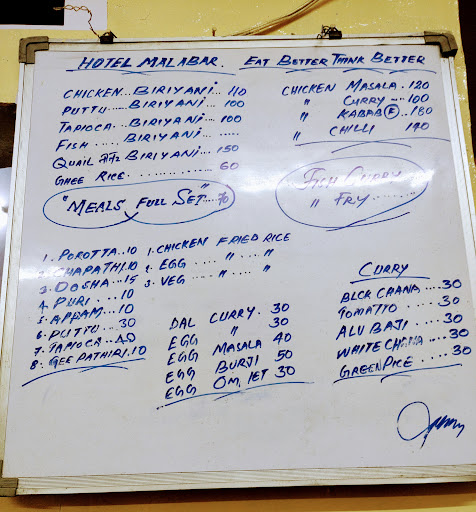 HOTEL MALABAR. EAT BETTER THINK BETTER
CHICKEN... BIRIYANI... 110
PUTTU..... BIRIYANI.... 100
TAPIOCA.. BIRIYANI... 100
FISH .... BIRIYANI... .....
QUAIL BIRIYANI.... 150
GHEE RICE. .............. 60
"MEALS, FULL SET".... 70
CHICKEN MASALA. 120
" CURRY --- 100
" KABAB (F)... 180
" CHILLI 190
FISH CURRY
" FRY .......
1. POROTTA.. 10
2. CHAPATHI. 10
3. DOSHA... 15
4. PURI ... 10
5. APPAM.... 10
6. PUTTU... 30
7. TAPIOCA.. 40
8. GEE PATHIRI. 10
1. CHICKEN FRIED RICE
2. EGG .... " .... "
3. VEG .... " .... "
DAL CURRY. 30
EGG " 30
EGG MASALA 40
EGG BURJI 50
EGG OM, LET 30
CURRY
BLCK CHANA .... 30
TOMATTO ..... 30
ALU BAJI ..... 30
WHITE CHANA .... 30
GREENPICE .... 30